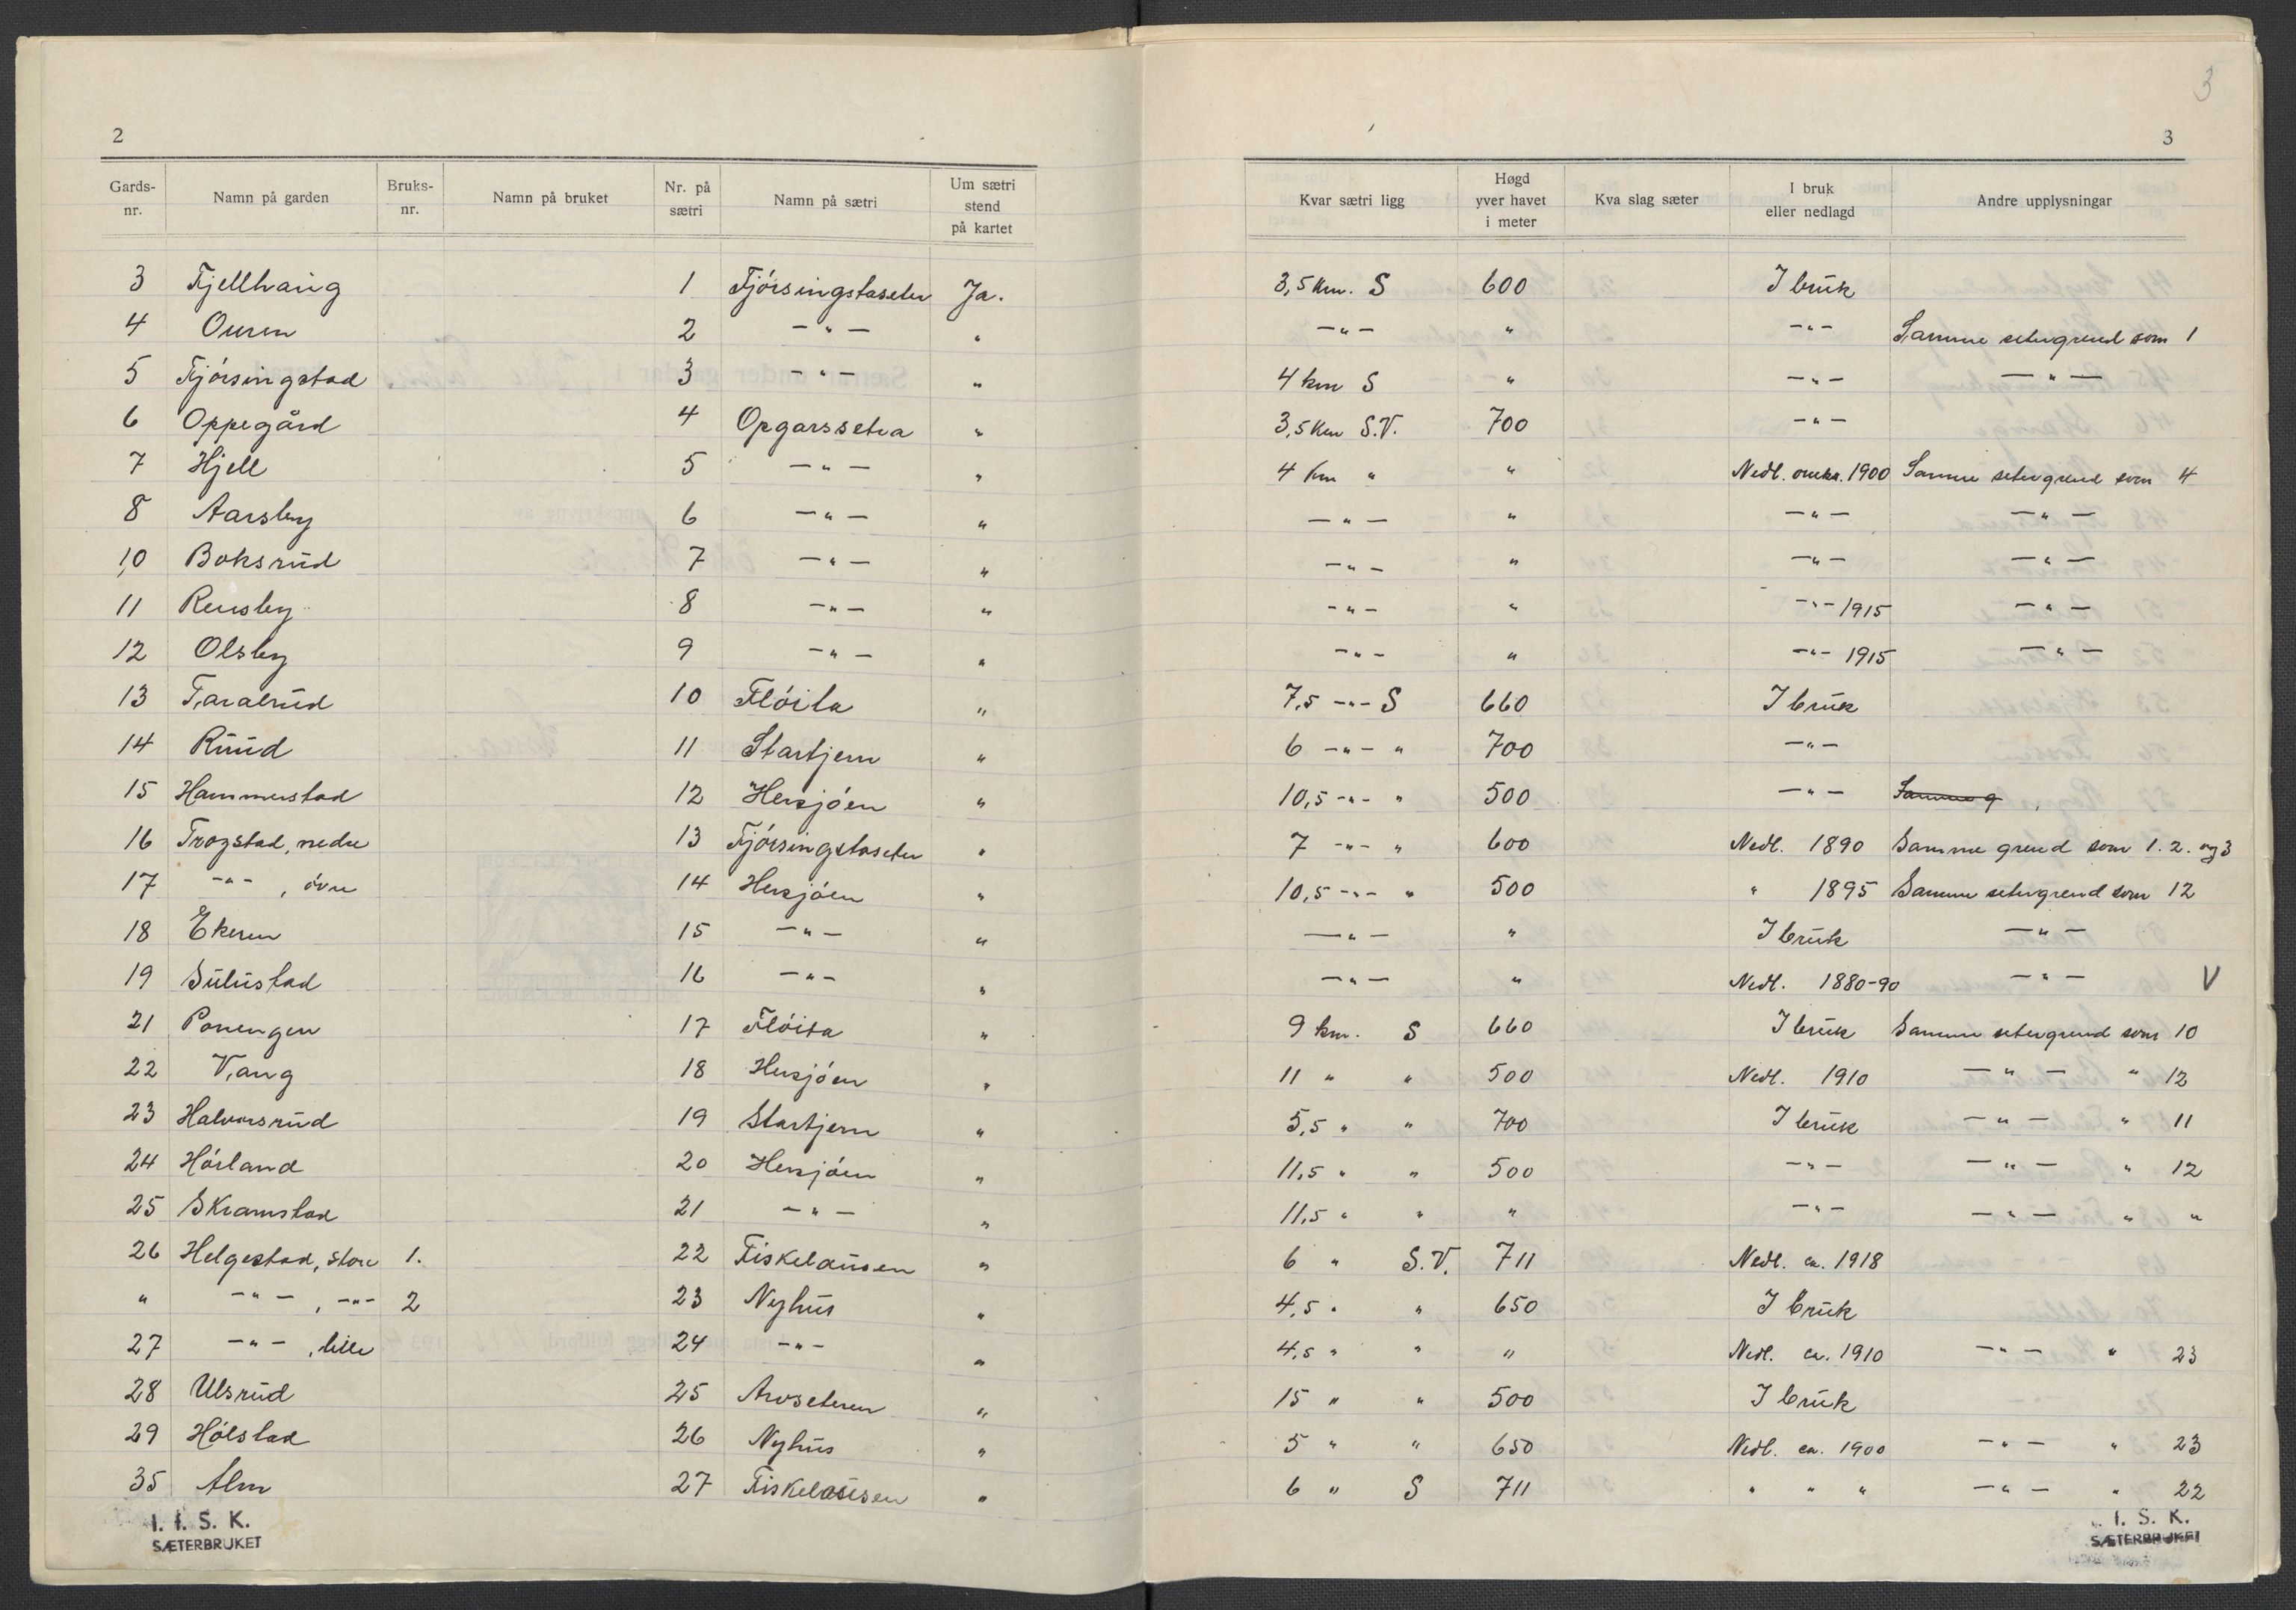 2
Gards-nr. Namn på garden Bruks-nr. Namn på bruket Nr. på sætri Namn på sætri Um sætri stend på kartet
3 Fjellhaug 1 Fjörsingstaseter Ja.
4 Ouren 2 —"— "
5 Fjörsingstad 3 —"— "
6 Oppegård 4 Opgarssetra "
7 Hjell 5 —"— "
8 Aarsby 6 —"— "
10 Boksrud 7 —"— "
11 Rensby 8 —"— "
12 Olsby 9 —"— "
13 Taralrud 10 Flöita "
14 Ruud 11 Startjern "
15 Hammerstad 12 Hersjöen "
16 Trogstad, nedre 13 Fjörsingstaseter "
17 —"— , övre 14 Hersjöen "
18 Ekeren 15 —"— "
19 Sulustad 16 —"— "
21 Ponengen 17 Flöita "
22 Vang 18 Hersjöen "
23 Halvorsrud 19 Startjern "
24 Hörland 20 Hersjöen "
25 Skramstad 21 —"— "
26 Helgestad, store 1. 22 Fiskelausen "
" —"— , —"— 2 23 Nyhus "
27 —"— , lille 24 —"— "
28 Ulsrud 25 Arvseteren "
29 Hölstad 26 Nyhus "
35 Alm 27 Fiskelausen "
I. I. S. K.
SÆTERBRUKET
3
3
Kvar sætri ligg Høgd yver havet i meter Kva slag sæter I bruk eller nedlagd Andre upplysningar
3,5 km. S 600 I bruk
—"— " —"— Samme setergrend som 1
4 km S " —"— —"—
3,5 km S.V. 700 —"—
4 km " " Nedl. omkr. 1900 Samme setergrend som 4
—"— " —"— —"—
—"— " —"— —"—
—"— " —"— 1915 —"—
—"— " —"— 1915 —"—
7,5 —"— S 660 I bruk
6 —"— " 700 —"—
10,5 —"— " 500 —"— Samme g
7 —"— " 600 Nedl. 1890 Samme grend som 1. 2. og 3
10,5 —"— " 500 " 1895 Samme setergrend som 12
—"— " I bruk —"—
—"— " Nedl. 1880-90 —"— V
9 km. S 660 I bruk Samme setergrend som 10
11 " " 500 Nedl. 1910 —"— " 12
5,5 " " 700 I bruk —"— " 11
11,5 " " 500 —"— —"— " 12
11,5 " " " —"— —"— " "
6 " S.V. 711 Nedl. ca. 1918
4,5 " " 650 I bruk
4,5 " " " Nedl. ca. 1910 —"— " 23
15 " " 500 I bruk
5 " " 650 Nedl. ca. 1900 —"— " 23
6 " S 711 " " " —"— " 22
I. S. K.
SÆTERBRUKET